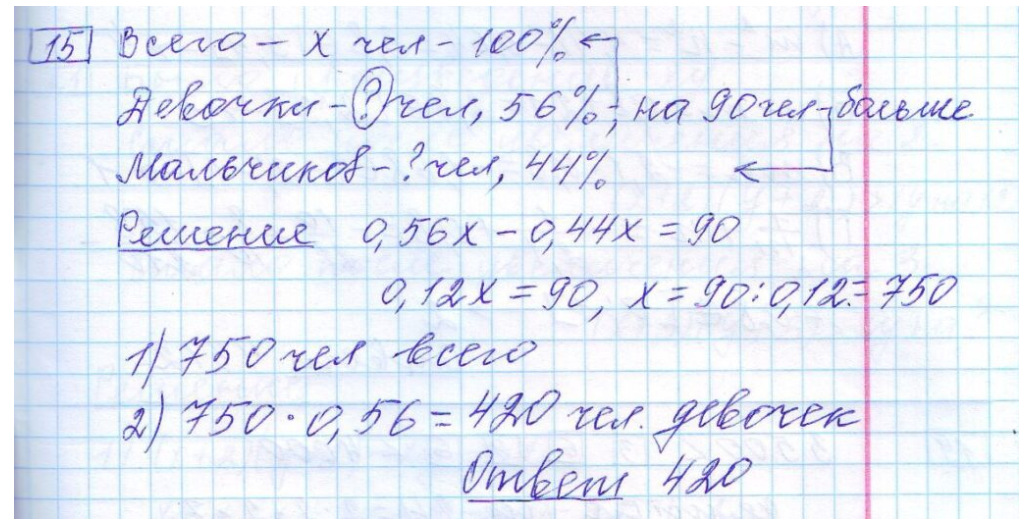 15 Всего - х чел - 100%
Девочки - ? чел, 56%, на 90 чел больше
Мальчиков - ? чел, 44%
Решение 0,56х - 0,44х = 90
0,12х = 90, х = 90:0,12 = 750
1) 750 чел всего
2) 750 · 0,56 = 420 чел. девочек
Ответ 420